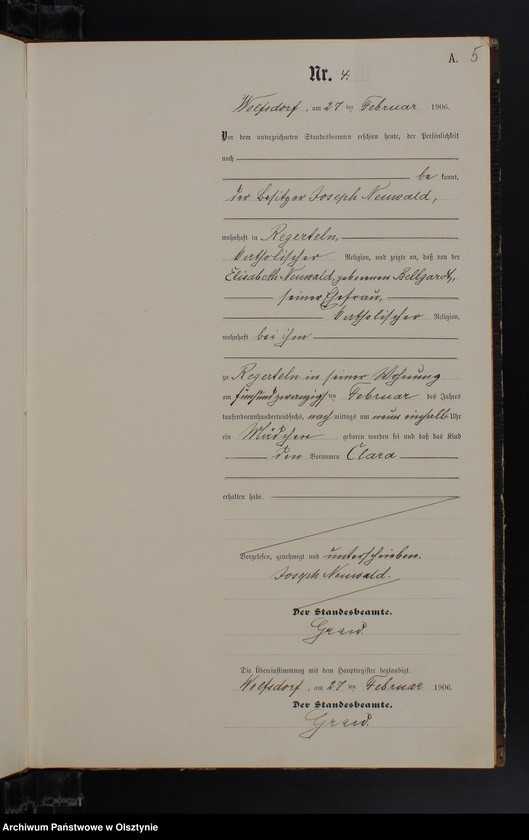 A. 5
Nr. 4.
Wolfsdorf, am 27ten Februar 1906.
Vor dem unterzeichneten Standesbeamten erschien heute, der Persönlichkeit
nach
be kannt,
der Besitzer Joseph Neuwald,
wohnhaft in Regerteln,
katholischer Religion, und zeigte an, daß von der
Elisabeth Neuwald, geborenen Bellgardt,
seiner Ehefrau,
katholischer Religion,
wohnhaft bei ihm
zu Regerteln in seiner Wohnung
am fünfundzwanzigsten Februar des Jahres
tausendneunhundertundsechs, nach mittags um neun einhalb Uhr
ein Mädchen geboren worden sei und daß das Kind
den Vornamen Clara
erhalten habe.
Vorgelesen, genehmigt und unterschrieben.
Joseph Neuwald.
Der Standesbeamte.
Die Übereinstimmung mit dem Hauptregister beglaubigt.
Wolfsdorf, am 27ten Februar 1906.
Der Standesbeamte.
Archiwum Państwowe w Olsztynie